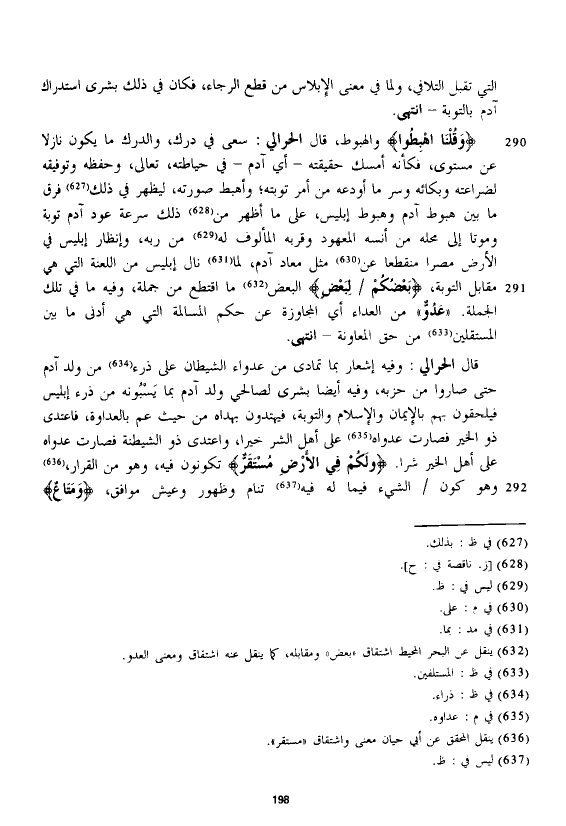 التي تقبل التلافي، ولما في معنى الإبلاس من قطع الرجاء، فكان في ذلك بشرى استدراك
آدم بالتوبة – انتهى.
290 ﴿وَقُلْنَا اهْبِطُوا﴾ والهبوط، قال الحرالي : سعى في درك، والدرك ما يكون نازلا
عن مستوى، فكأنه أمسك حقيقته – أي آدم – في حياطته، تعالى، وحفظه وتوفيقه
لضراعته وبكائه وسر ما أودعه من أمر توبته؛ وأهبط صورته، ليظهر في ذلك(627) فرق
ما بين هبوط آدم وهبوط إبليس، على ما أظهر من(628) ذلك سرعة عود آدم توبة
وموتا إلى محله من أنسه المعهود وقربه المألوف له(629) من ربه، وإنظار إبليس في
الأرض مصرا منقطعا عن(630) مثل معاد آدم، لما(631) نال إبليس من اللعنة التي هي
291 مقابل التوبة، ﴿بَعْضُكُمْ / لِبَعْضٍ﴾ البعض(632) ما اقتطع من جملة، وفيه ما في تلك
الجملة. «عَدُوٌّ» من العداء أي المجاوزة عن حكم المسالمة التي هي أدنى ما بين
المستقلين(633) من حق المعاونة – انتهى.
قال الحرالي : وفيه إشعار بما تمادى من عدواء الشيطان على ذرء(634) من ولد آدم
حتى صاروا من حزبه، وفيه أيضا بشرى لصالحي ولد آدم بما يَسْبُونه من ذرء إبليس
فيلحقون بهم بالإيمان والإسلام والتوبة، فيهتدون بهداه من حيث عم بالعداوة، فاعتدى
ذو الخير فصارت عدواه(635) على أهل الشر خيرا، واعتدى ذو الشيطنة فصارت عدواه
على أهل الخير شرا. ﴿ولَكُمْ فِي الأَرْضِ مُسْتَقَرٌّ﴾ تكونون فيه، وهو من القرار،(636)
292 وهو كون / الشيء فيما له فيه(637) تنام وظهور وعيش موافق، ﴿وَمَتَاعٌ﴾
(627) في ظ : بذلك.
(628) [ز. ناقصة في : ح].
(629) ليس في : ظ.
(630) في م : على.
(631) في مد : بما.
(632) ينقل عن البحر المحيط اشتقاق «بعض» ومقابله، كما ينقل عنه اشتقاق ومعنى العدو.
(633) في ظ : المستلفين.
(634) في ظ : ذراء.
(635) في م : عداوه.
(636) ينقل المحقق عن أبي حيان معنى واشتقاق «مستقر».
(637) ليس في : ظ.
198